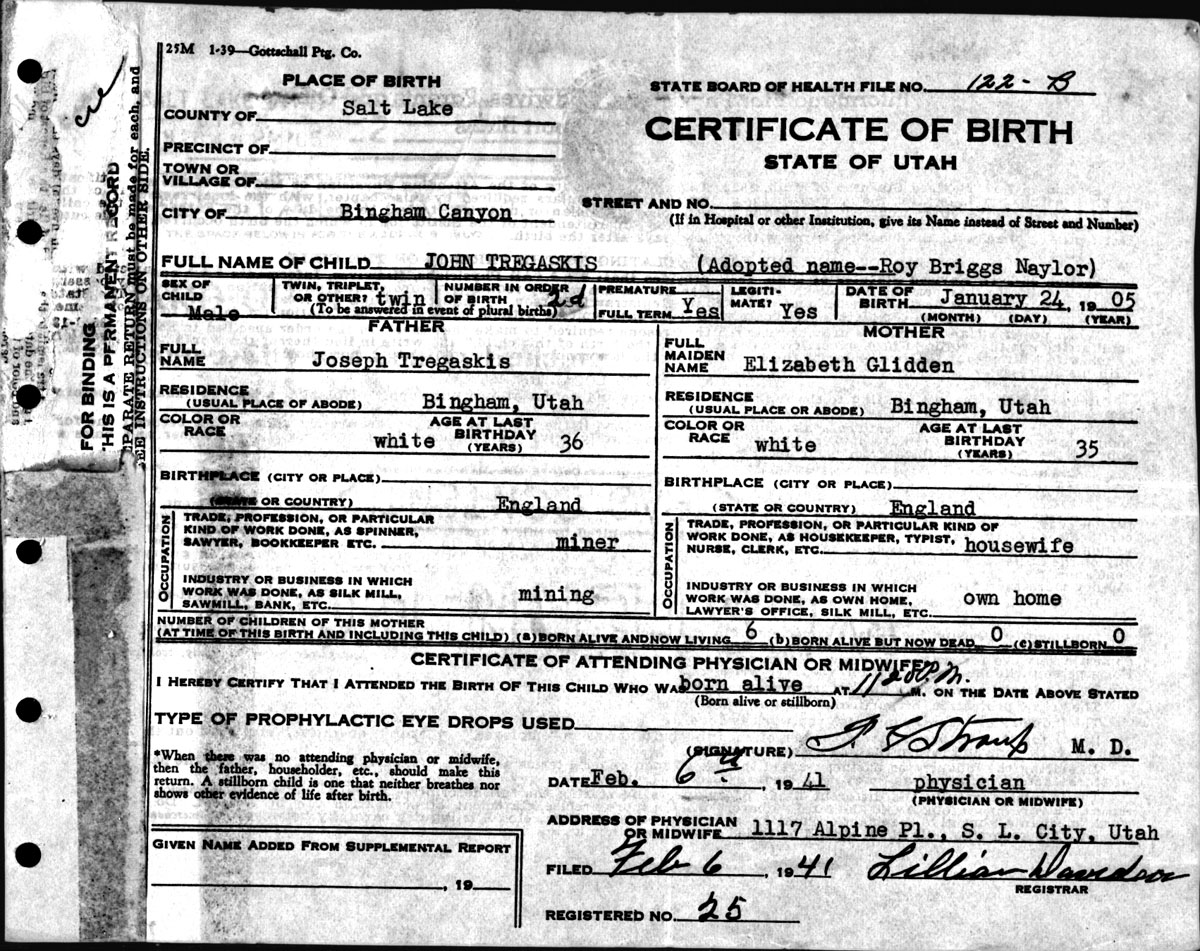 25M 1-39—Gottschall Ptg. Co.
PLACE OF BIRTH
STATE BOARD OF HEALTH FILE NO. 122-B
COUNTY OF Salt Lake
CERTIFICATE OF BIRTH
STATE OF UTAH
PRECINCT OF
TOWN OR
VILLAGE OF
CITY OF Bingham Canyon
STREET AND NO.
(If in Hospital or other Institution, give its Name instead of Street and Number)
FULL NAME OF CHILD JOHN TREGASKIS (Adopted name--Roy Briggs Naylor)
SEX OF CHILD Male
TWIN, TRIPLET, OR OTHER? twin
NUMBER IN ORDER OF BIRTH 2d
(To be answered in event of plural births)
PREMATURE
FULL TERM Yes
LEGITI-
MATE? Yes
DATE OF BIRTH January 24, 1905
(MONTH) (DAY) (YEAR)
FATHER
FULL NAME Joseph Tregaskis
RESIDENCE
(USUAL PLACE OF ABODE) Bingham, Utah
COLOR OR RACE white
AGE AT LAST BIRTHDAY (YEARS) 36
BIRTHPLACE (CITY OR PLACE)
(STATE OR COUNTRY) England
OCCUPATION
TRADE, PROFESSION, OR PARTICULAR
KIND OF WORK DONE, AS SPINNER,
SAWYER, BOOKKEEPER ETC. miner
INDUSTRY OR BUSINESS IN WHICH
WORK WAS DONE, AS SILK MILL,
SAWMILL, BANK, ETC. mining
MOTHER
FULL MAIDEN NAME Elizabeth Glidden
RESIDENCE
(USUAL PLACE OR ABODE) Bingham, Utah
COLOR OR RACE white
AGE AT LAST BIRTHDAY (YEARS) 35
BIRTHPLACE (CITY OR PLACE)
(STATE OR COUNTRY) England
OCCUPATION
TRADE, PROFESSION, OR PARTICULAR KIND OF
WORK DONE, AS HOUSEKEEPER, TYPIST,
NURSE, CLERK, ETC. housewife
INDUSTRY OR BUSINESS IN WHICH
WORK WAS DONE, AS OWN HOME,
LAWYER'S OFFICE, SILK MILL, ETC. own home
NUMBER OF CHILDREN OF THIS MOTHER
(AT TIME OF THIS BIRTH AND INCLUDING THIS CHILD) (a) BORN ALIVE AND NOW LIVING 6 (b) BORN ALIVE BUT NOW DEAD 0 (c) STILLBORN 0
CERTIFICATE OF ATTENDING PHYSICIAN OR MIDWIFE
I HEREBY CERTIFY THAT I ATTENDED THE BIRTH OF THIS CHILD WHO WAS born alive AT 11 P.M. M. ON THE DATE ABOVE STATED
(Born alive or stillborn)
TYPE OF PROPHYLACTIC EYE DROPS USED
(SIGNATURE) Straup M. D.
*When there was no attending physician or midwife,
then the father, householder, etc., should make this
return. A stillborn child is one that neither breathes nor
shows other evidence of life after birth.
DATE Feb. 6th, 1941 physician
(PHYSICIAN OR MIDWIFE)
ADDRESS OF PHYSICIAN
OR MIDWIFE 1117 Alpine Pl., S. L. City, Utah
GIVEN NAME ADDED FROM SUPPLEMENTAL REPORT
, 19
FILED Feb 6, 1941 Lillian Davidson
REGISTRAR
REGISTERED NO. 25
FOR BINDING
THIS IS A PERMANENT RECORD
PARATE RETURN must be made for each, and
EE INSTRUCTIONS ON OTHER SIDE.